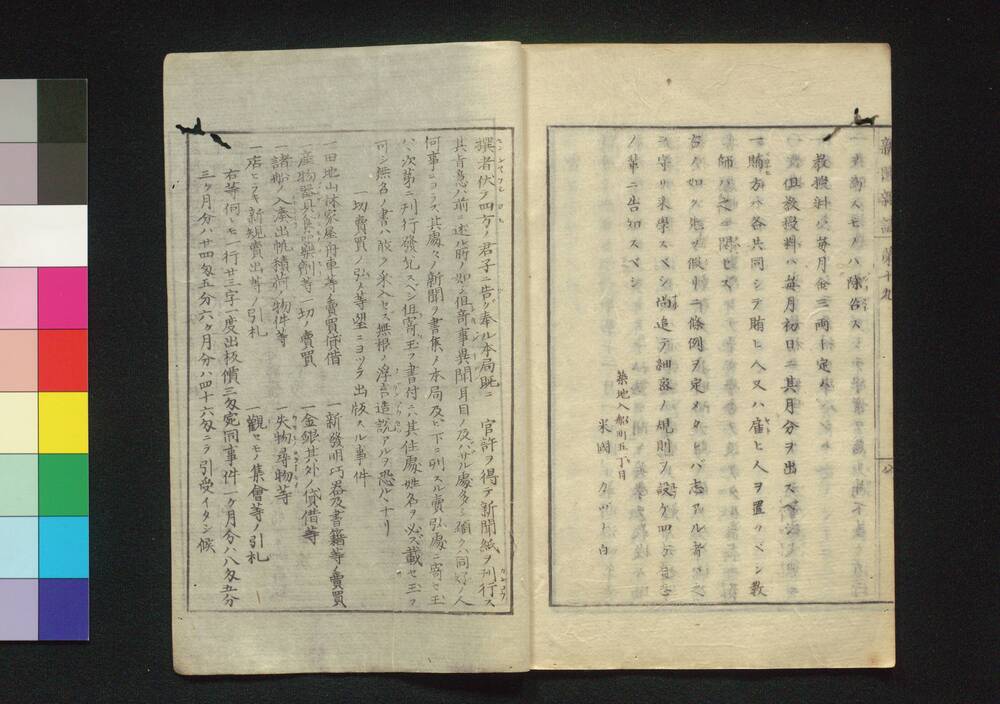 新聞雜誌 第十九
ハ除名ス
一教授料ハ毎月金三両ト定ム
但教授料ハ毎月初日ニ其月分ヲ出スベシ
一賄方ハ各共同シテ賄ヒ人又ハ雇ヒ人ヲ置クベシ教
師ハ之ニ関セズ
右ノ如ク先ヅ假リニ條例ヲ定メタレバ志アル者ハ之
ヲ守リ来學スベシ尚追テ細密ノ規則ヲ設ケ四方同志
ノ輩ニ告知スベシ
築地入船町五丁目
米國
撰者伏シテ四方ノ君子ニ告ゲ奉ル本局既ニ 官許ヲ得テ新聞紙ヲ刊行ス
其肯意ハ前ニ述ル所ノ如シ但奇事異聞耳目ノ及バザル處多シ願クハ同好ノ人
何事ニヨラズ其處々ノ新聞ヲ書集メ本局及ビ下ニ列スル賣弘處ニ寄セ玉
ハヾ次第ニ刊行發兌スベシ但寄玉フ書付ニハ其住處姓名ヲ必ズ載セ玉フ
可シ無名ノ書ハ敢テ采入セズ無根ノ浮言造説アルヲ恐ルヽナリ
一切賣買ノ弘メ等望ニヨツテ出版スル事件
一田地山林家屋舟車等ノ賣買貸借
一新發明巧器及書籍等ノ賣買
一産物器具食品藥劑等一切ノ賣買
一金銀其外ノ貸借等
一諸船ノ入湊出帆積荷ノ物件等
一失物尋物等
一店ヒラキ新規賣出等ノ引札
一觀セモノ集會等ノ引札
右等何レモ一行廿三字一度出板價三匁宛同事件一ケ月分ハ八匁五分
三ケ月分ハ廿四匁五分六ケ月分ハ四十六匁ニテ引受イタシ候